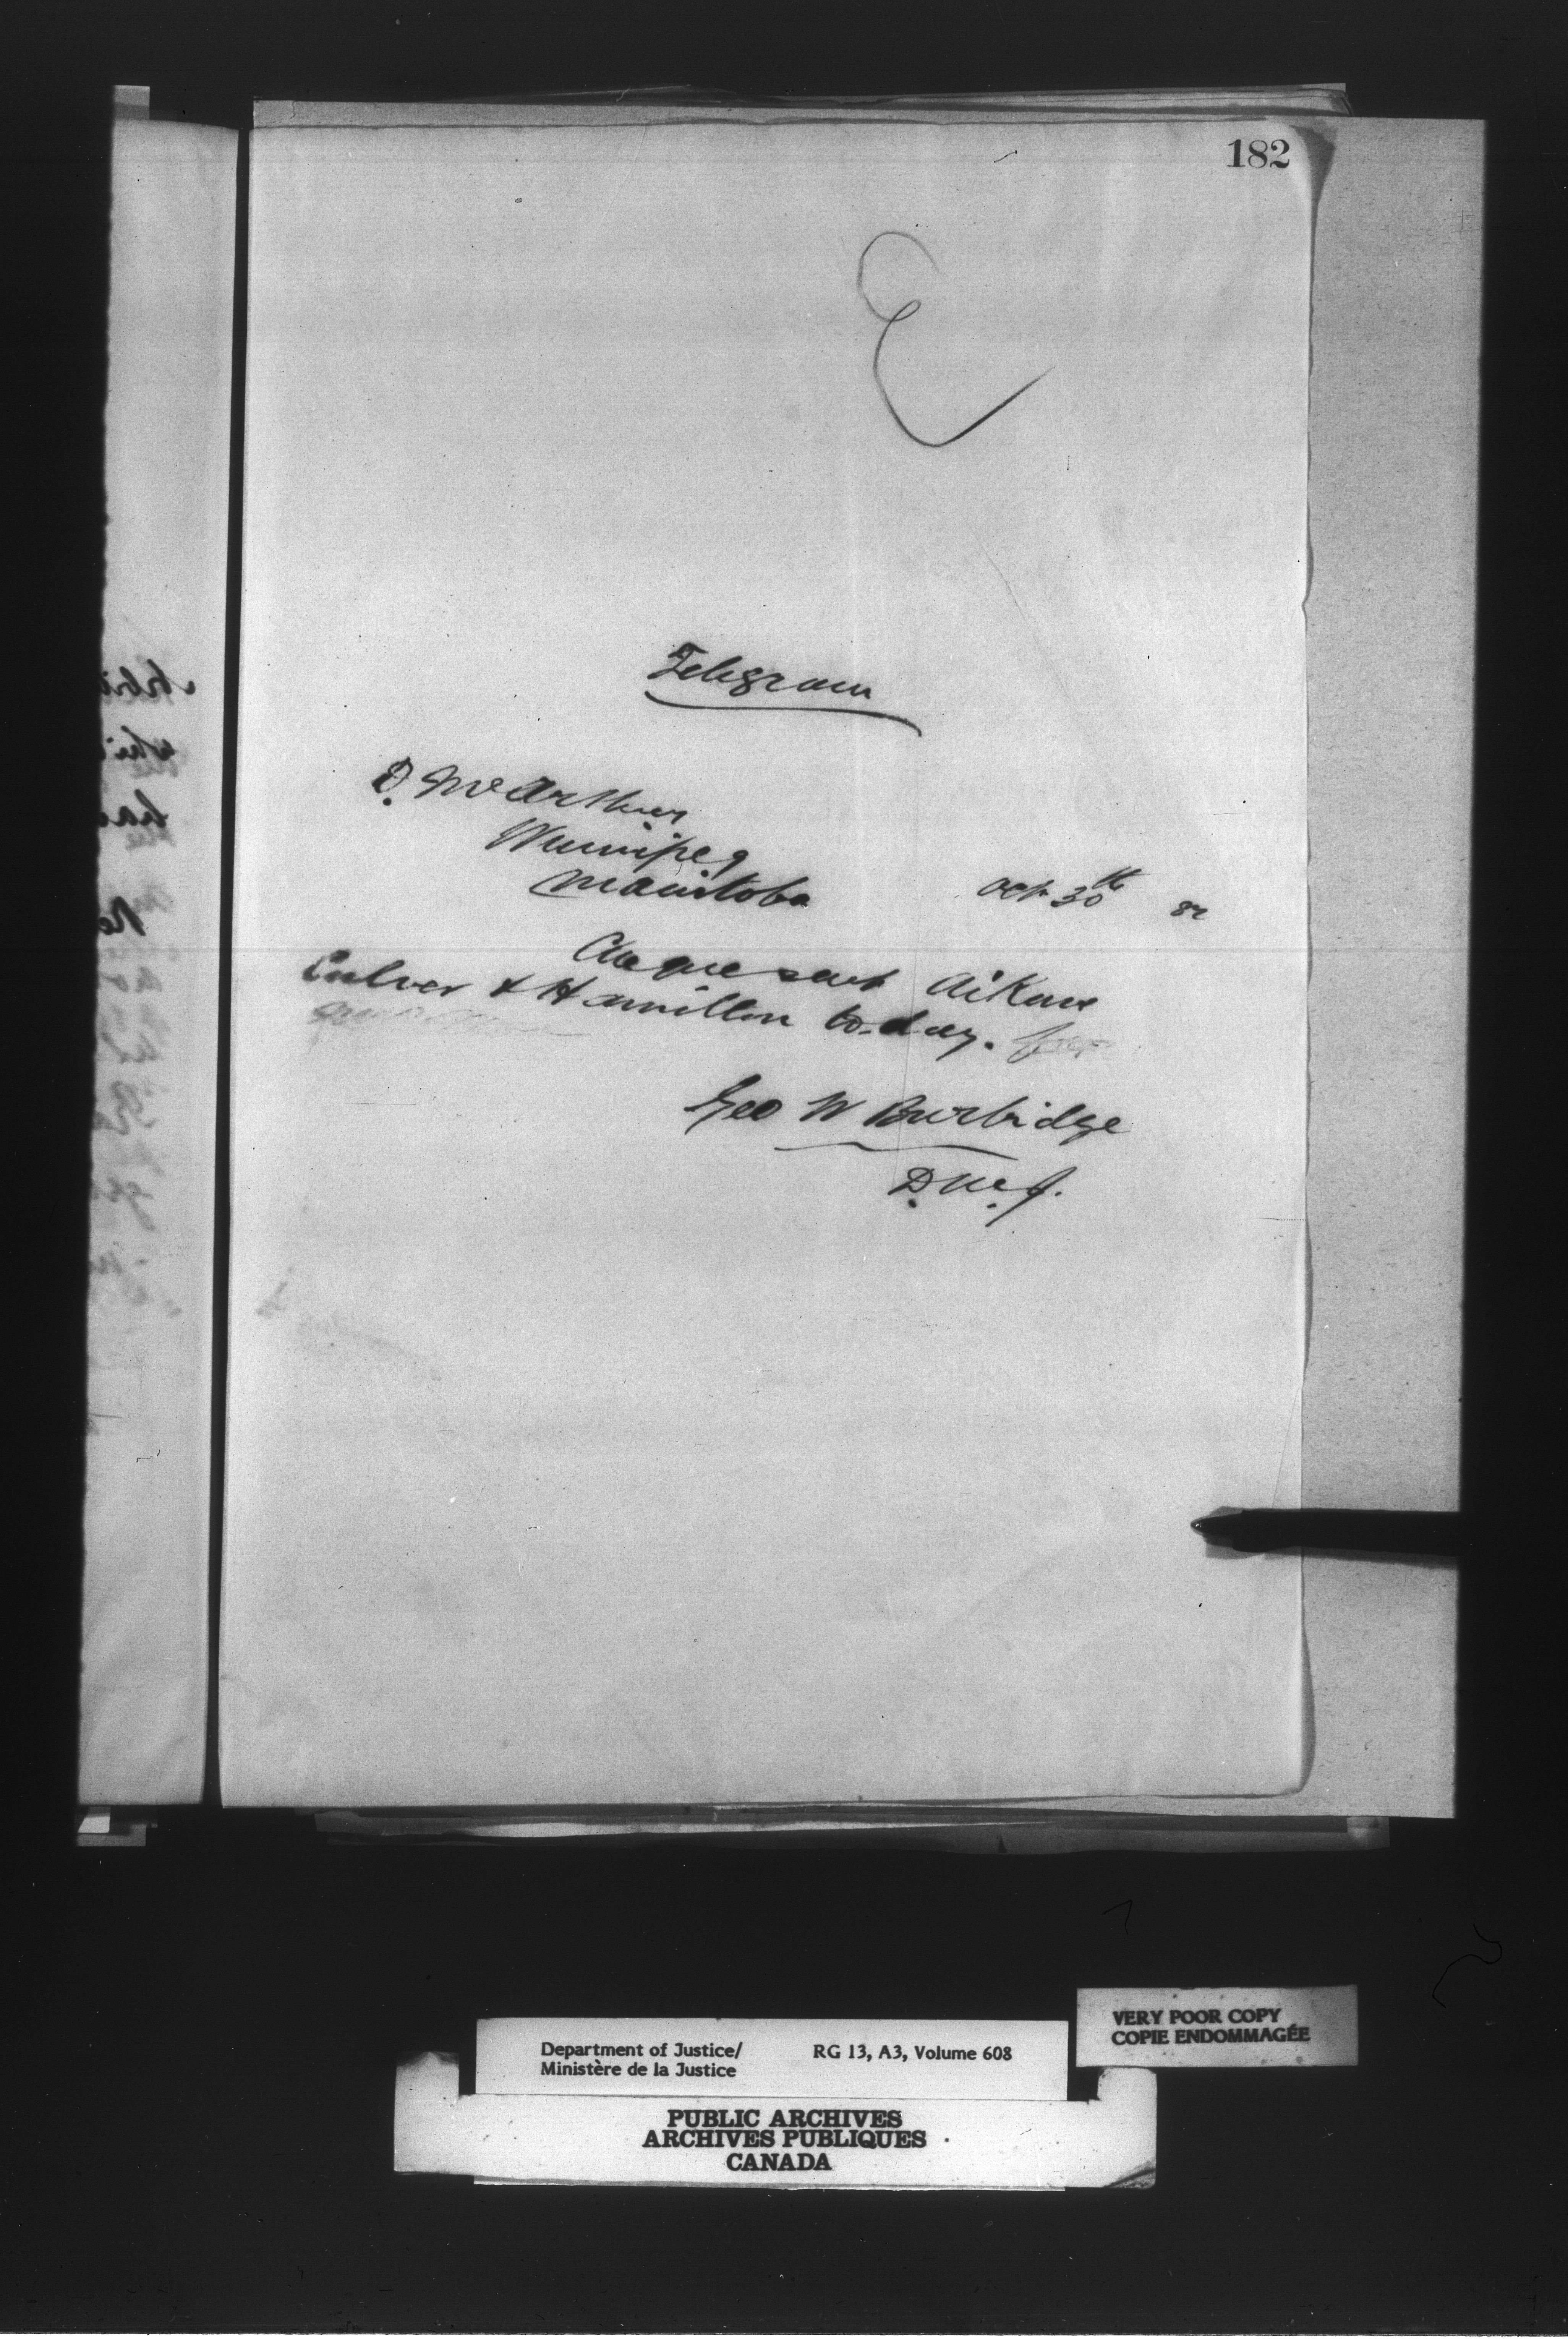 182
Telegram
D. McArthur
Winnipeg
Manitoba
Oct 30th 82
Cheque sent Aikins
Culver & Hamilton to-day.
Geo W Burbidge
D.M.J.
VERY POOR COPY
COPIE ENDOMMAGÉE
Department of Justice/ RG 13, A3, Volume 608
Ministère de la Justice
PUBLIC ARCHIVES
ARCHIVES PUBLIQUES
CANADA